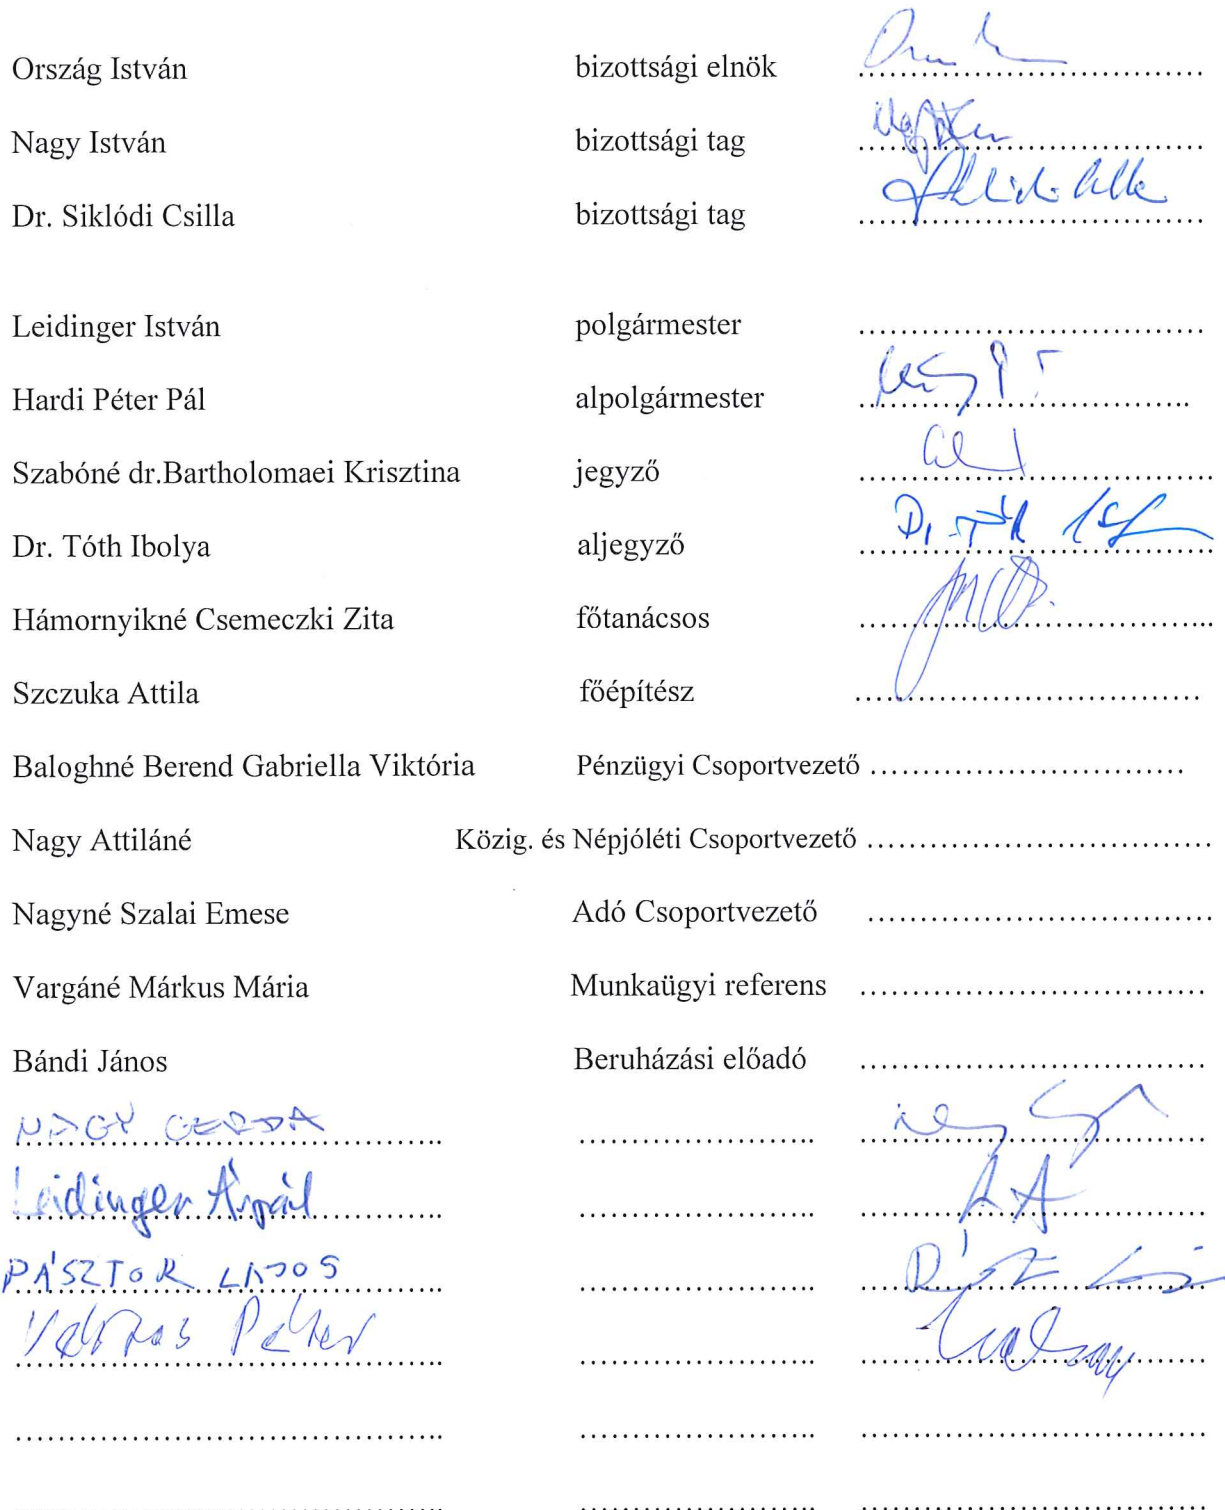 Ország István bizottsági elnök ................................
Nagy István bizottsági tag ................................
Dr. Siklódi Csilla bizottsági tag ................................
Leidinger István polgármester ................................
Hardi Péter Pál alpolgármester ................................
Szabóné dr.Bartholomaei Krisztina jegyző ................................
Dr. Tóth Ibolya aljegyző Dr. Tóth ................................
Hámornyikné Csemeczki Zita főtanácsos ................................
Szczuka Attila főépítész ................................
Baloghné Berend Gabriella Viktória Pénzügyi Csoportvezető ................................
Nagy Attiláné Közig. és Népjóléti Csoportvezető ................................
Nagyné Szalai Emese Adó Csoportvezető ................................
Vargáné Márkus Mária Munkaügyi referens ................................
Bándi János Beruházási előadó ................................
NAGY GERDA
Leidinger Árpád LA
PÁSZTOR LAJOS
Péter